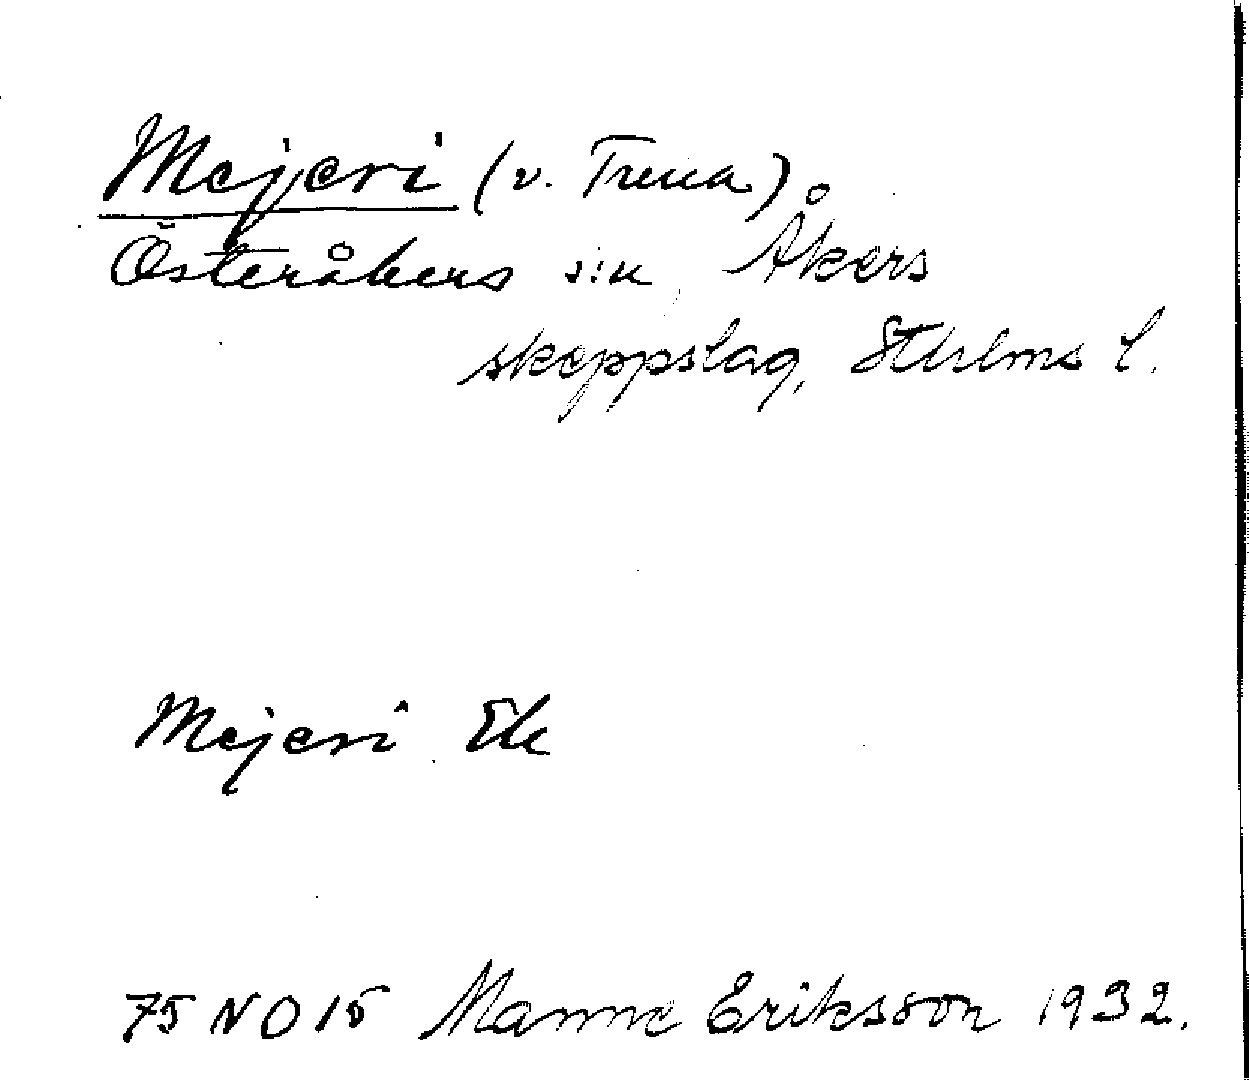 Mejeri (v. Treua)
Österåkers s:n, Åkers
skeppslag, Sthlms l.
Mejeri Ek
75 NO 15 Manne Eriksson 1932.